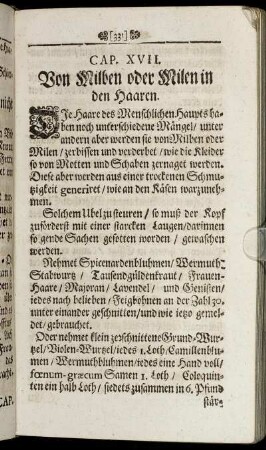 [331]
CAP. XVII.
Von Milben oder Milen in
den Haaren.
DIe Haare des Menschlichen Haupts ha-
ben noch unterschiedene Mängel/ unter
andern aber werden sie von Milben oder
Milen/ zerbissen und verderbet/ wie die Kleider
so von Motten und Schaben zernaget werden.
Diese aber werden aus einer trockenen Schmu-
tzigkeit generiret/ wie an den Käsen warzuneh-
men.
Solchem Ubel zu steuren/ so muß der Kopf
zuförderst mit einer starcken Laugen/ darinnen
so gende Sachen gesotten worden/ gewaschen
werden.
Nehmet Spicenardenbluhmen/ Wermuth-
Stabwurtz/ Tausendgüldenkraut/ Frauen-
Haare/ Majoran/ Lavendel/ und Genisten/
iedes nach belieben/ Feigbohnen an der Zahl 30.
unter einander geschnitten/ und wie ietzo gemel-
det/ gebrauchet.
Oder nehmet klein zerschnittene Grund-Wur-
tzel/ Violen-Wurtzel/ iedes 1. Loth/ Camillenblu-
men/ Wermuthbluhmen/ iedes eine Hand voll/
fœnum-græcum Samen 1. Loth/ Coloquin-
ten ein halb Loth/ siedets zusammen in 6. Pfund
stär-